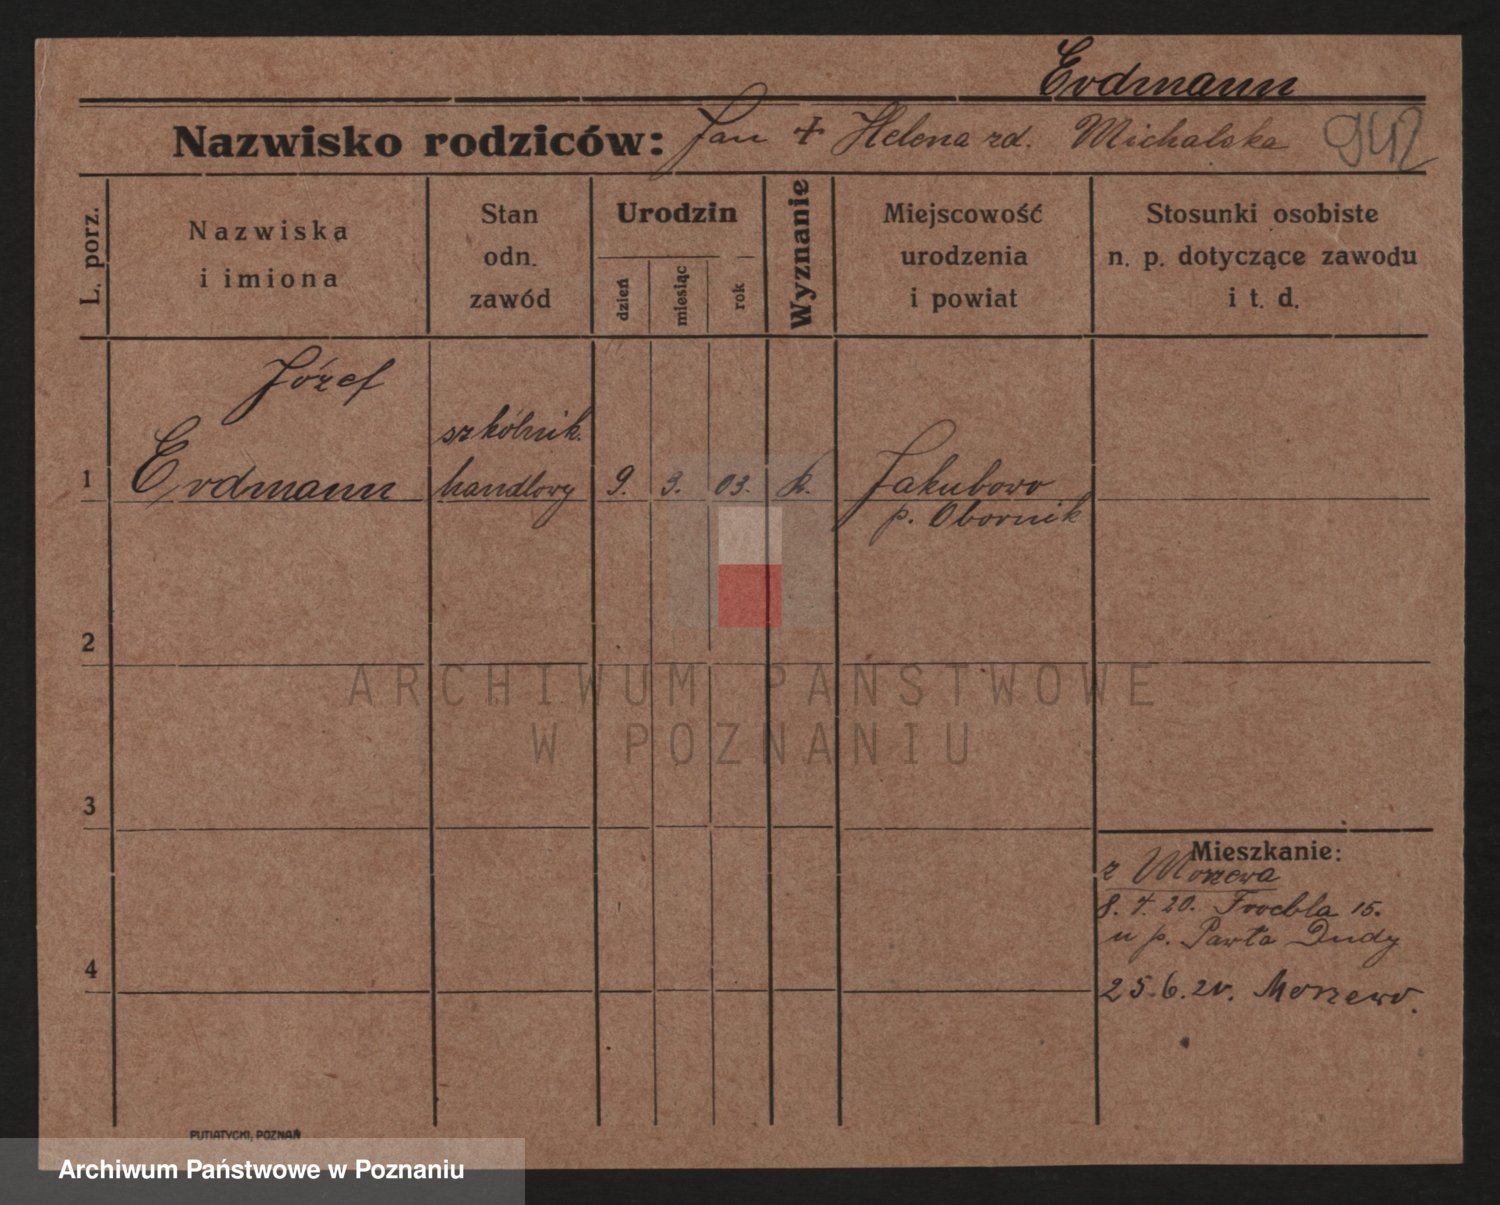 Erdmann
Nazwisko rodziców: Jan + Helena zd. Michalska 942
L. porz.
Nazwiska
i imiona
Stan
odn.
zawód
Urodzin
dzień
miesiąc
rok
Wyznanie
Miejscowość
urodzenia
i powiat
Stosunki osobiste
n. p. dotyczące zawodu
i t. d.
Józef
szkólnik.
1 Erdmann handlowy 9. 3. 03. k. Jakubowo
p. Obornik
2
ARCHIWUM PAŃSTWOWE
W POZNANIU
3
Mieszkanie:
z Morzewa
8. 4. 20. Froebla 15.
u p. Pawła Dudy
4
25.6.20. Morzewo.
PUTIATYCKI, POZNAŃ
Archiwum Państwowe w Poznaniu